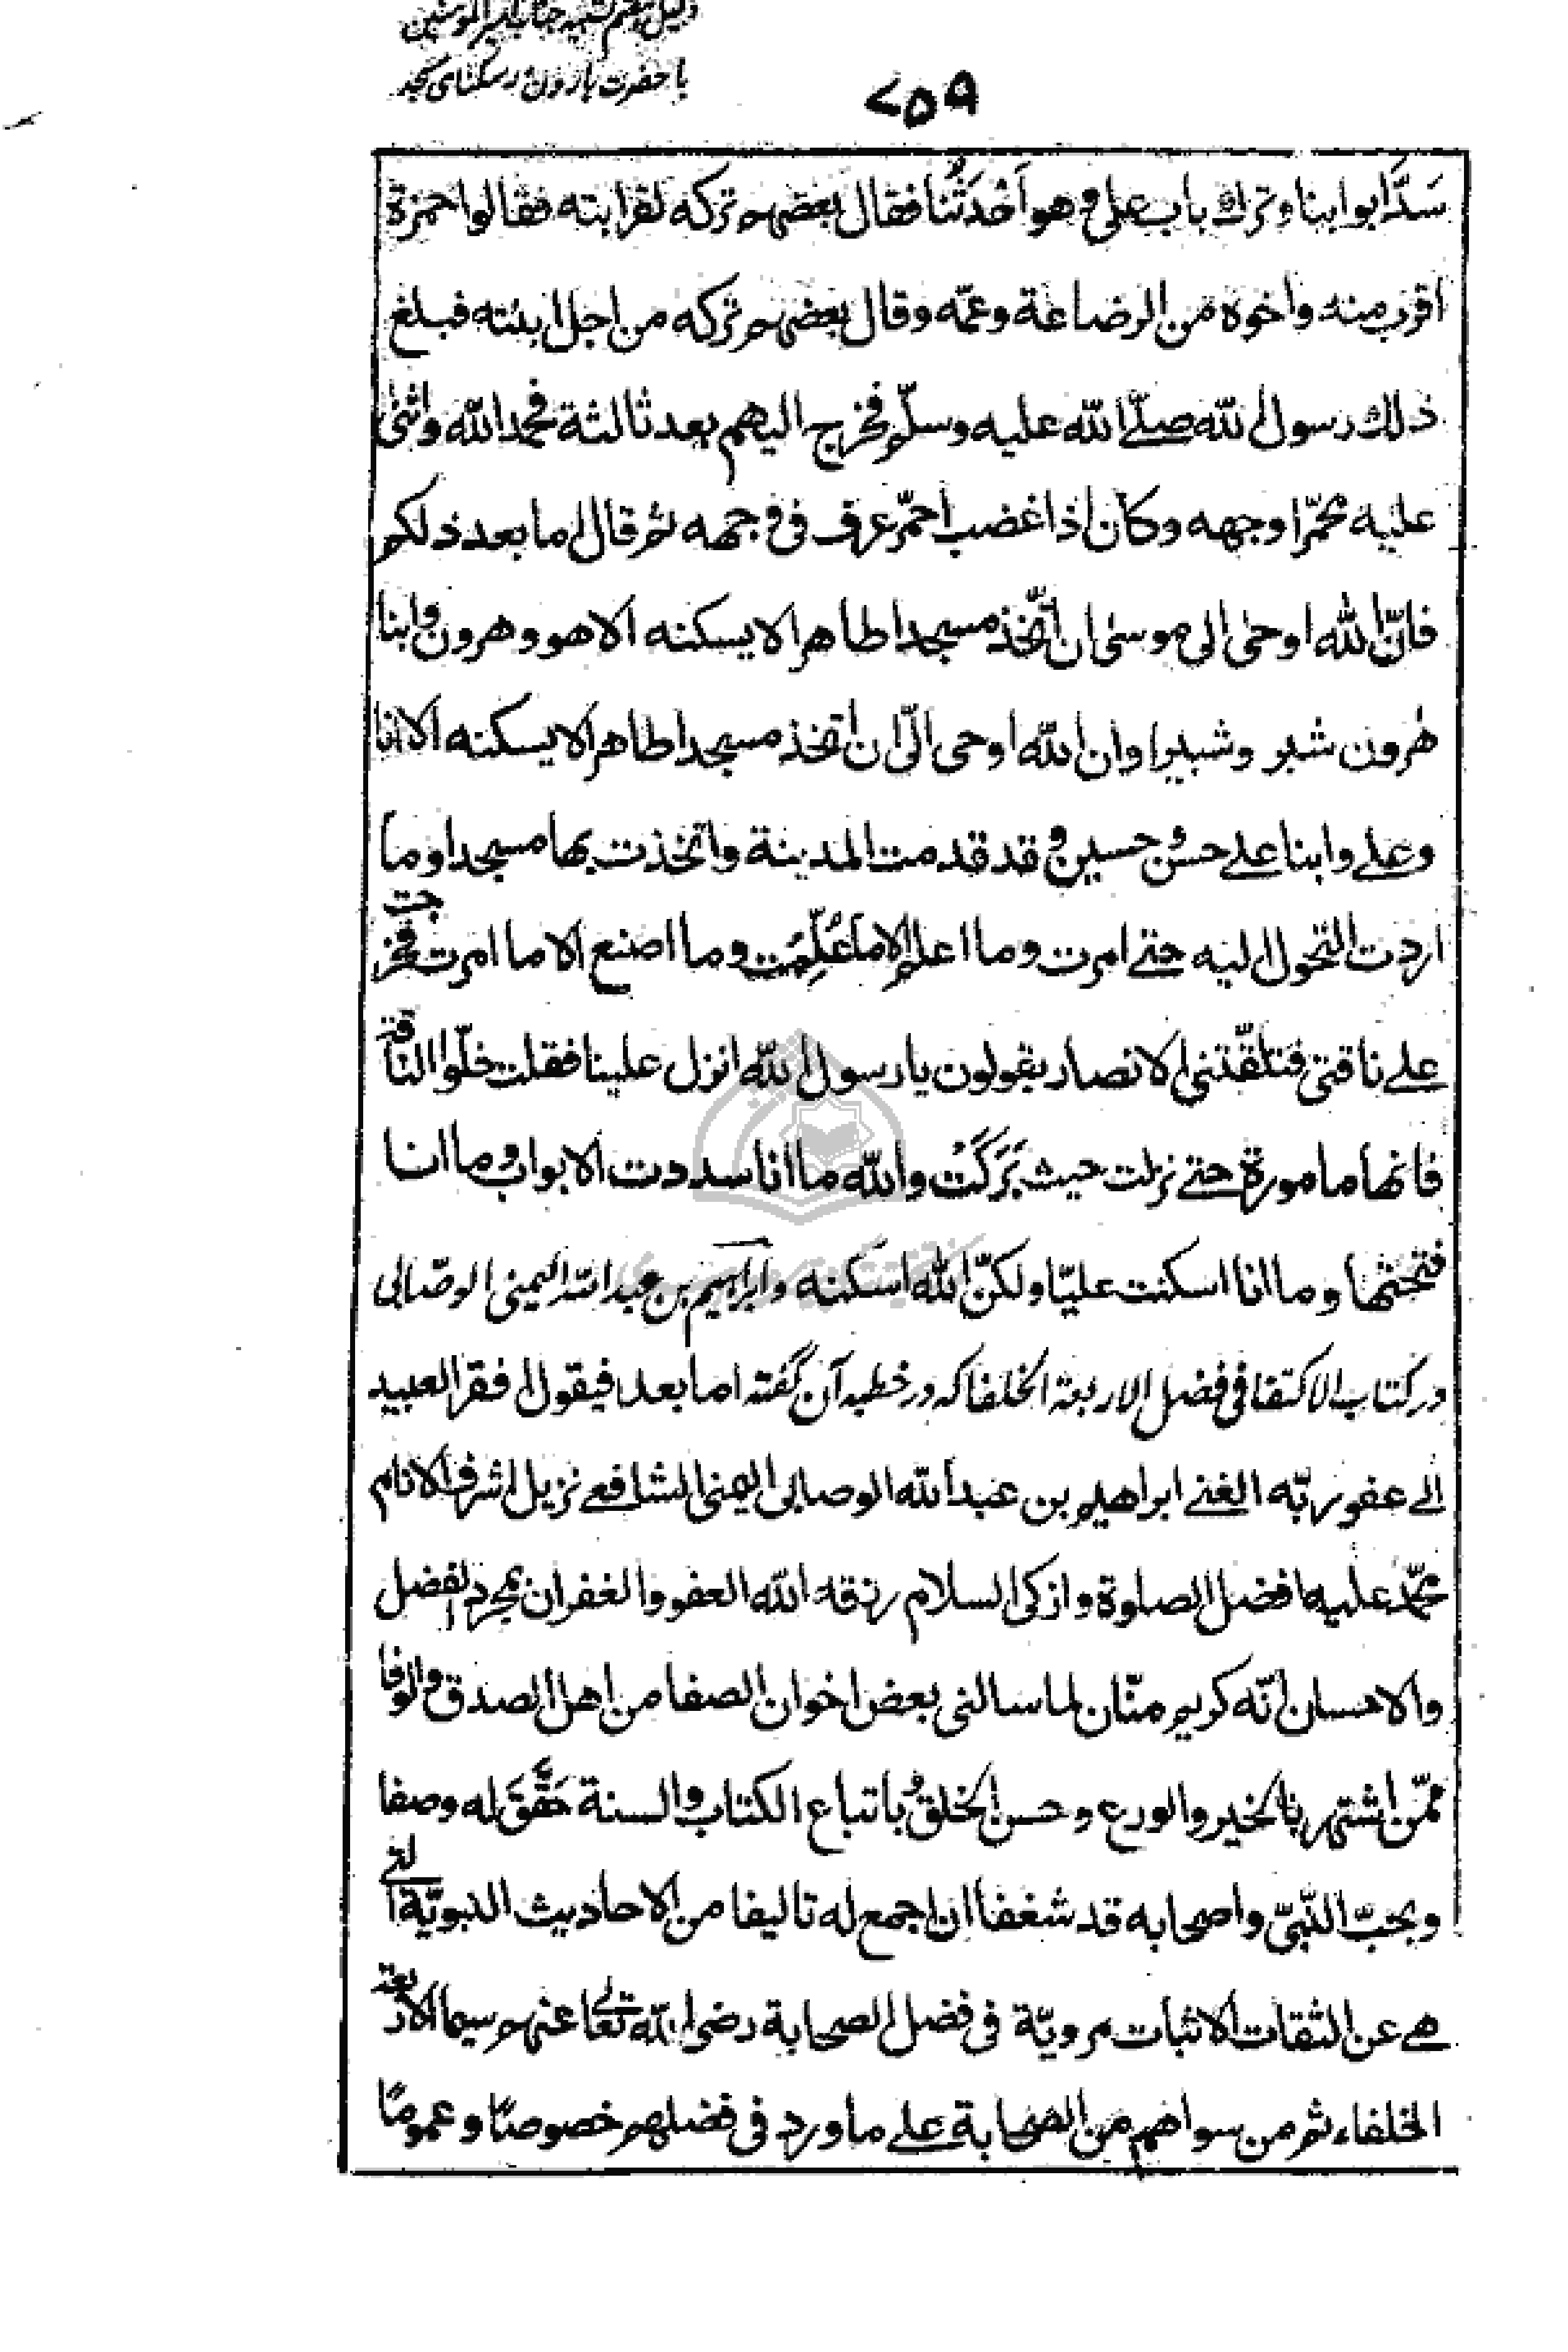 دلیل پنجم تشبیه جناب امیر المومنین
با حضرت هارون در سکنای مسجد
۷۵۹
سَدَّ ابوابنا وترك باب علي وهو اَحْدَثُنا فقال بعضهم تركه لقرابته فقالوا حمزة
اقرب منه واخوه من الرضاعة وعمّه وقال بعضهم تركه من اجل ابنته فبلغ
ذلك رسول الله صلّے الله عليه وسلّم فخرج اليهم بعد ثالثة فحمد الله واثنى
عليه محمّرا وجهه وكان اذا غضب احمّر عرق فى وجهه ثم قال اما بعد ذلكم
فانّ الله اوحى الى موسى ان اتّخذ مسجدا طاهرا لا يسكنه الا هو وهرون وابنا
هرون شبر وشبيرا وان الله اوحى الىّ ان اتخذ مسجدا طاهرا لا يسكنه الا انا
وعلے وابنا علے حسن وحسين وقد قدمت المدينة واتخذت بها مسجدا وما
اردت التحول اليه حتے امرت وما اعلم الا ما عُلِّمت وما اصنع الا ما امرت فخرجت
علے ناقتى فتلقّتنى الانصار يقولون يا رسول الله انزل علينا فقلت خلّوا الناقة
فانها مامورة حتے نزلت حيث بَرَكَتْ والله ما انا سددت الابواب وما انا
فتحتها وما انا اسكنت عليّا ولكنّ الله اسكنه وابراهیم بن عبد الله الیمنی الوصّابی
در کتاب الاکتفا فی فضل الاربعة الخلفا که در خطبه آن گفته اما بعد فيقول افقر العبيد
الے عفو ربّه الغنے ابراهيم بن عبد الله الوصابى اليمنى الشافعے نزيل اشرف الانام
محمّد عليه افضل الصلوة وازكى السلام رزقه الله العفو والغفران بمجرد الفضل
والاحسان انّه كريم منّان لما سالنى بعض اخوان الصفا من اهل الصدق والوفا
ممّن اشتهر بالخير والورع وحسن الخلق وباتباع الكتاب والسنة حَقَّقَ له وصفا
وبحبّ النّبىّ واصحابه قد شغفا ان اجمع له تاليفا من الاحاديث النبويّة التى
هے عن الثقات الاثبات مرويّة فى فضل الصحابة رضى الله تعالى عنهم سيما الاربعة
الخلفاء ثم من سواهم من الصحابة علے ما ورد فى فضلهم خصوصًا وعمومًا